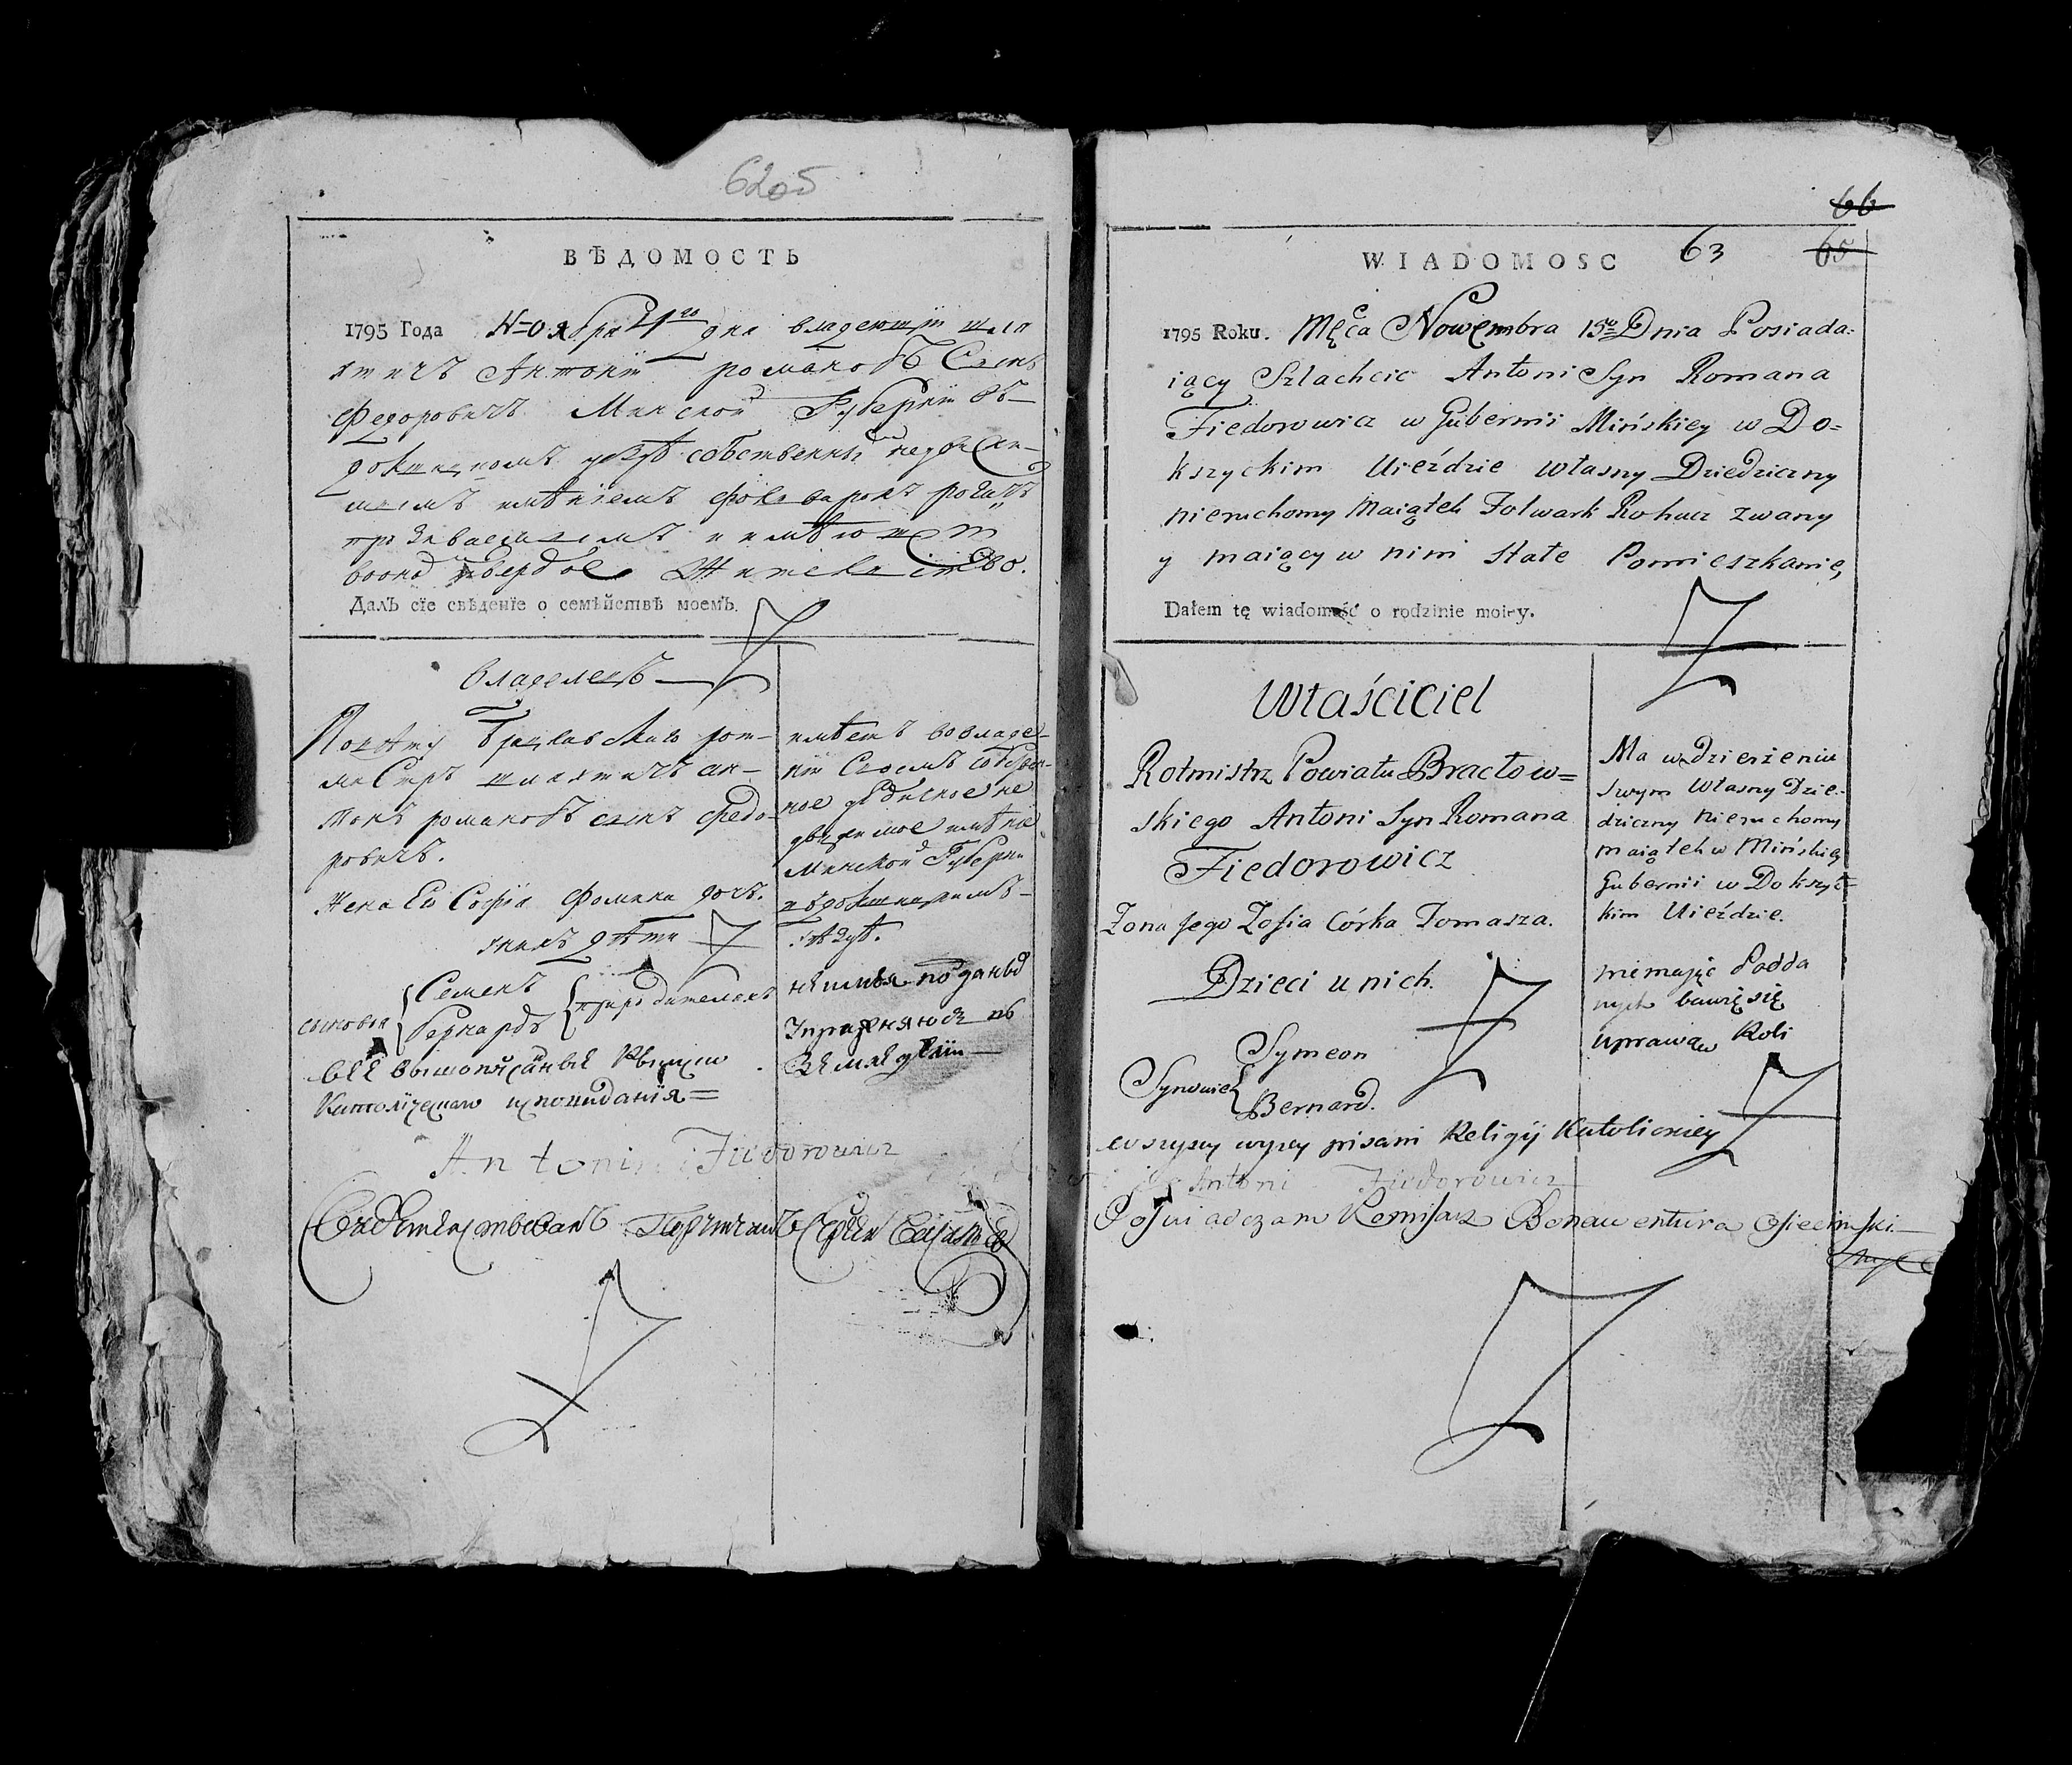 6205
ВѢДОМОСТЬ
1795 Года Ноября 4го дня владеющїй шля
хтичъ Антонїй романовъ Сынъ
Федоровичъ Минской Губернїи въ
докшицкомъ уездѣ собственнымъ недвижи-
мымъ имѣнїемъ фольварокъ рогачъ
называемымъ и имѣющїй
воономъ твердое Жительство.
Далъ сїе свѣденїе о семѣйствѣ моемъ.
Владелецъ
Повѣту Брацлавскаго рот-
мистръ шляхтичъ ан-
тонъ романовъ сынъ федо-
ровичъ.
Жена Ево Софїя Фомина дочь.
унихъ дѣти
сыновья Семенъ
Бернардъ
при родителяхъ
всѣ вышеписаные Рымско
Католическаго исповиданїя
имѣетъ вовладе-
нїи Своемъ собствен-
ное дѣдичное не
движимое имѣнїе
Минской Губернїи
въдокшицкомъ
уѣздѣ.
неимѣя поданыхъ
упражняюся въ
Земледелїи
Antoni Fiedorowicz
Свидѣтельствовалъ Порутчикъ Сергей
66
63 65
WIADOMOSC
1795 Roku. Męca Nowembra 15º Dnia Posiada:
iący Szlachcic Antoni Syn Romana
Fiedorowicz w Gubernii Mińskiey w Do=
kszyckim Uieździe własny Dziedziczny
nieruchomy Maiątek Folwark Rohacz zwany
y maiący w nim stałe Pomieszkanie,
Dałem tę wiadomość o rodzinie moiey.
Właściciel
Rotmistrz Powiatu Bracłow=
skiego Antoni Syn Romana
Fiedorowicz
Żona Jego Zofia Córka Tomasza.
Dzieci u nich.
Synowie Symeon
Bernard.
wszyscy wyżey pisani Religij Katolickiey
Ma w Dzierżeniu
swym własny Dzie-
dziczny nieruchomy
maiątek w Mińskiey
Gubernii w Dokszyc=
kim Uieździe.
niemając Podda
nych bawię się
uprawą Roli
Antoni Fiedorowicz
Poświadczam Komisarz Bonawentura Osiecimski